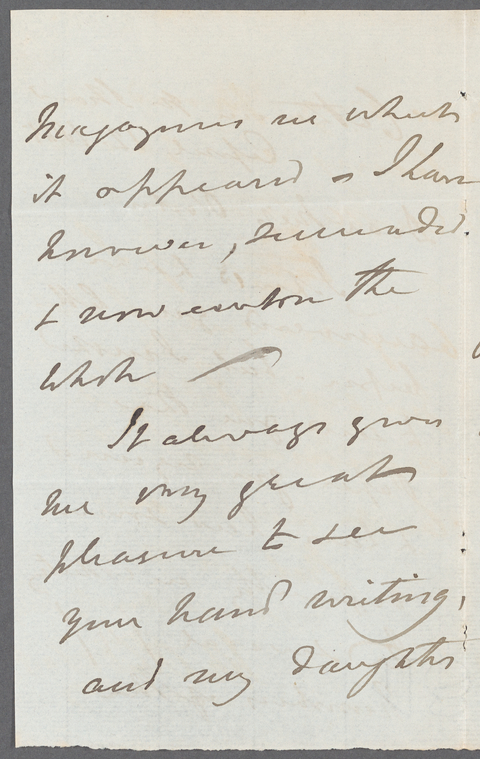 Magazines in which
it appeared - I have
however, succeeded.
& now enclose the
whole
It always gives
me very great
pleasure to see
your hand writing,
and my daughter